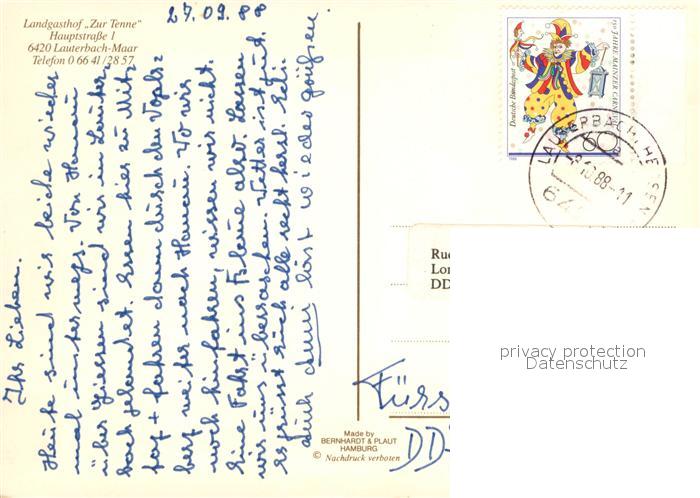 Landgasthof „Zur Tenne"
Hauptstraße 1
6420 Lauterbach-Maar
Telefon 0 66 41 / 28 57
27.09.88
Ihr Lieben.
Heute sind wir beide wieder
mal unterwegs. Von Hanau
über Giessen sind wir in Lauter-
bach gelandet. Essen hier zu Mit-
tag + fahren dann durch den Vogels-
berg weiter nach Hanau. Wo wir
noch hinfahren, wissen wir nicht.
Eine Fahrt ins Blaue also. Lassen
wir uns überraschen. Wetter ist gut.
Es grüsst euch alle recht herzl. Edi
auch dann lässt wieder grüßen.
Made by
BERNHARDT & PLAUT
HAMBURG
© Nachdruck verboten
Deutsche Bundespost
150 JAHRE MAINZER CARNEVAL
60
1988
LAUTERBACH, HESSEN
-3.10.88-11
64
Rud
Lon
DD
Fürs
DD-
privacy protection
Datenschutz